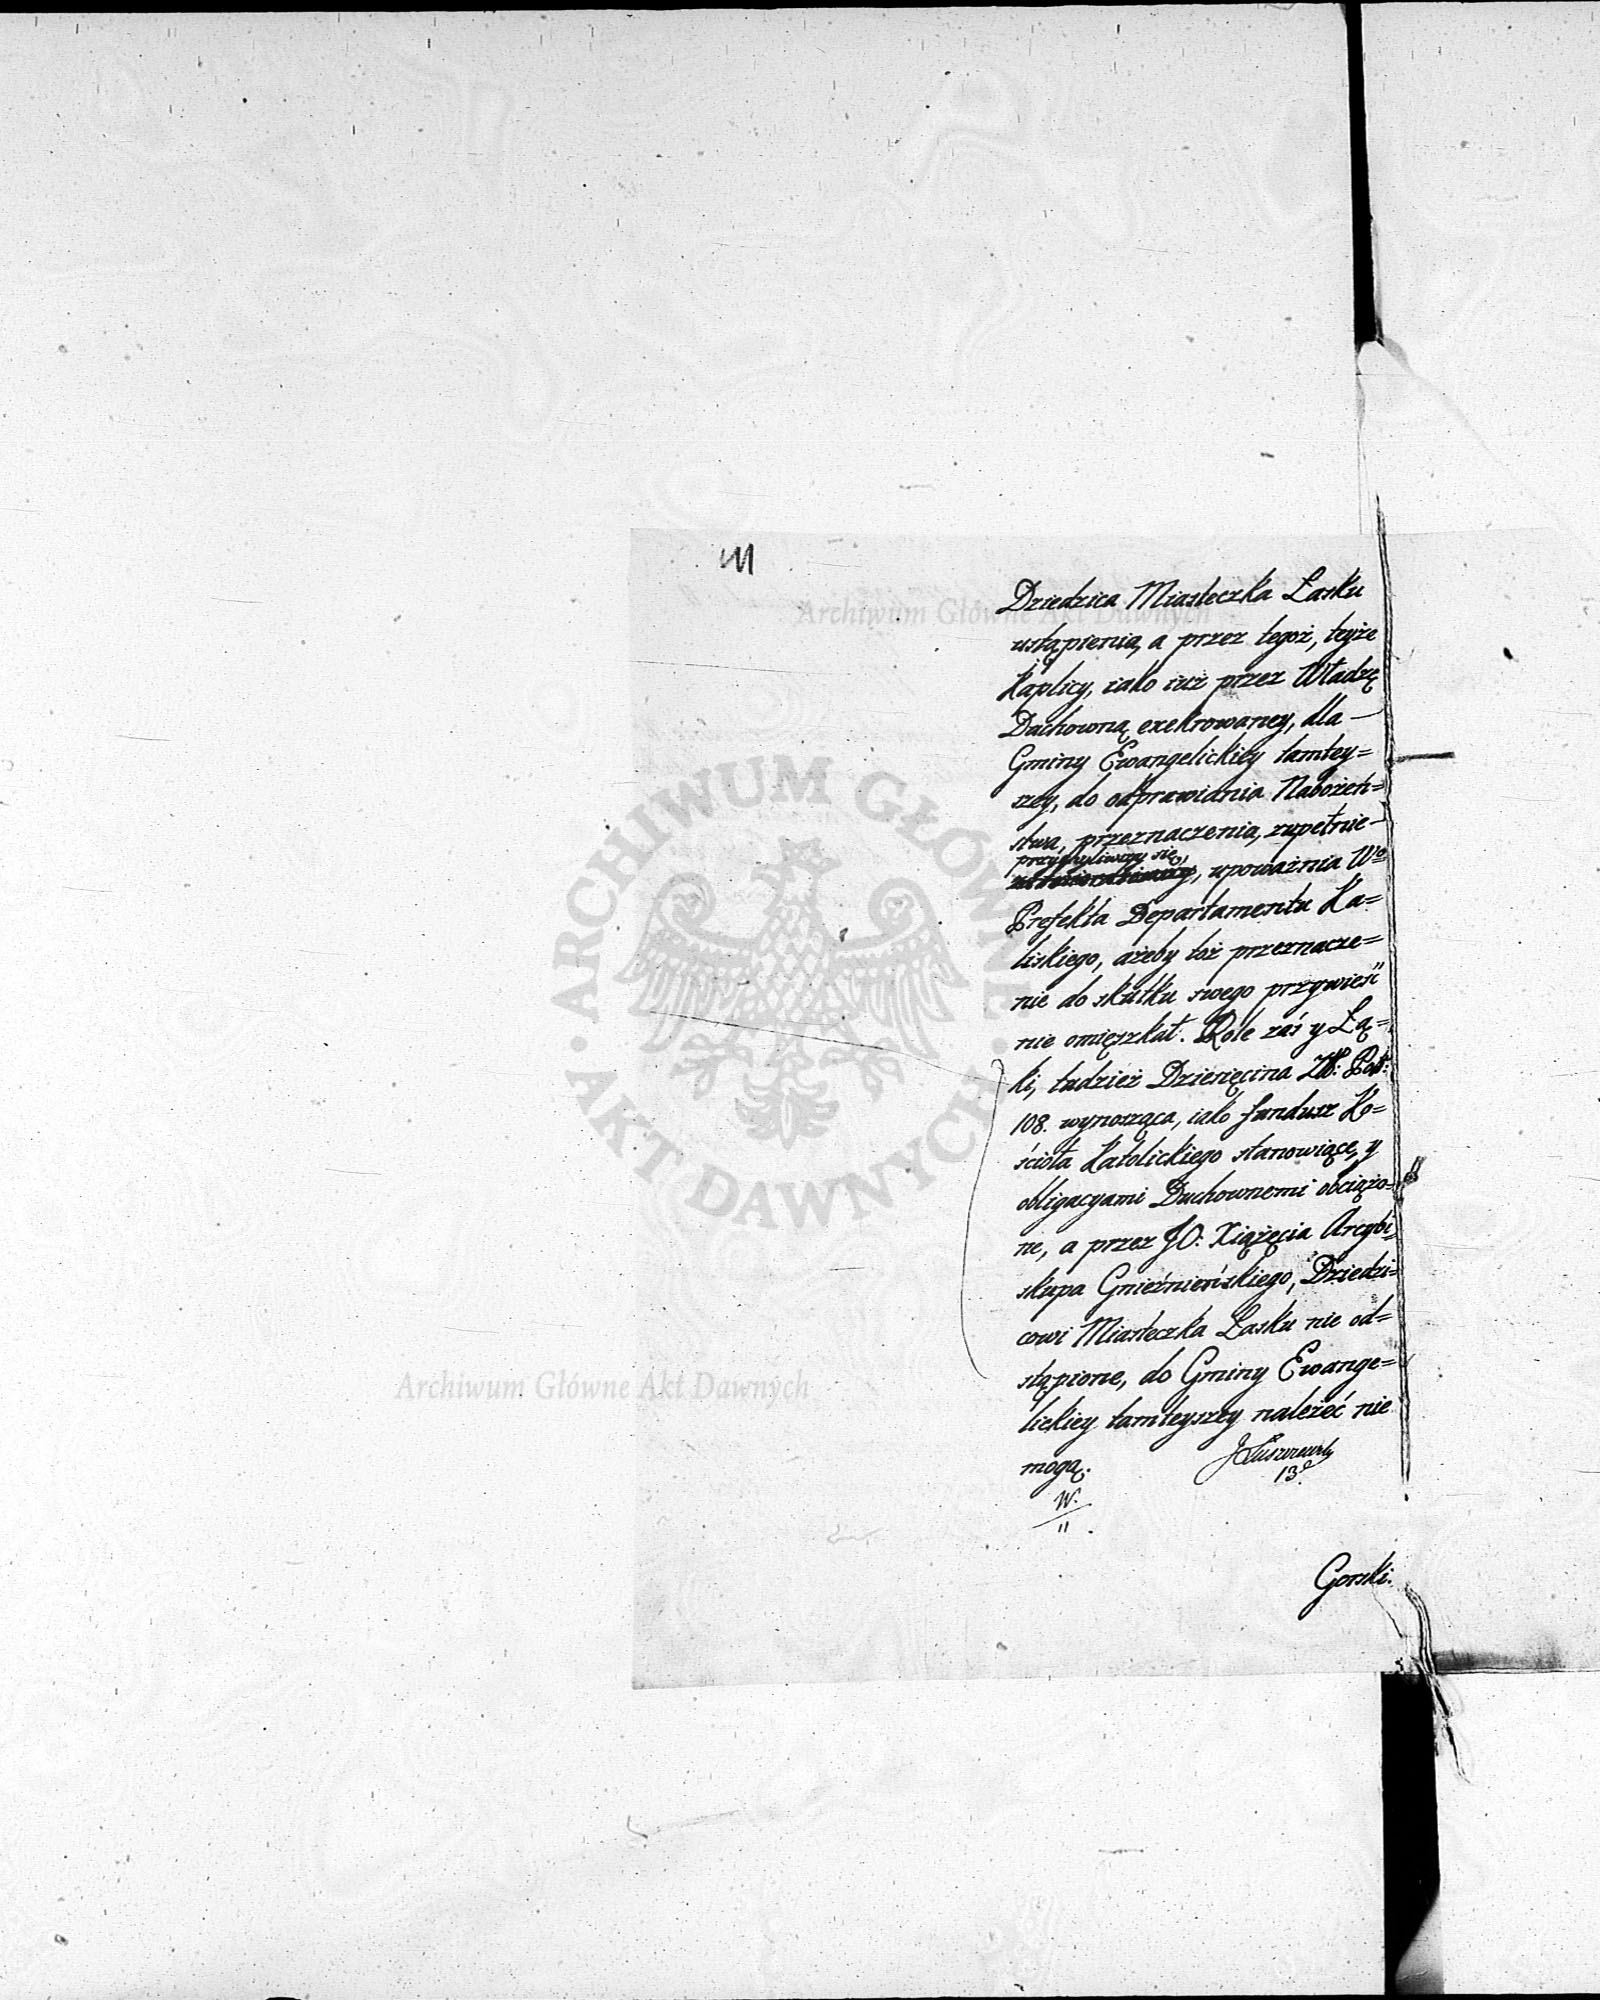 Dziedzica Miasteczka Łasku
ustąpienia, a przez tegoż, teyże
Kaplicy, iako iuż przez Władzę
Duchowną exekrowaney, dla —
Gminy Ewangelickiey tamtey=
szey, do odprawiania Nabożeń=
stwa, przeznaczenia, zupełnie
przychyliwszy się,
, upoważnia Wo
Prefekta Departamentu Ka=
liskiego, ażeby toż przeznacze=
nie do skutku swego przywieść
nie omięszkał. Role zaś y Łą=
ki, tudzież Dziesięcina
108. wynosząca, iako fundusz Ko=
ścioła Katolickiego stanowiące, y
obligacyami Duchownemi obciążo=
ne, a przez JO: Xiążęcia Arcybi=
skupa Gnieźnieńskiego, Dziedzi=
cowi Miasteczka Łasku nie od=
stąpione, do Gminy Ewange=
lickiey tamteyszey należeć nie
mogą.
13
W.
11
Gorski.
Archiwum Główne Akt Dawnych
ARCHIWUM GŁÓWNE · AKT DAWNYCH ·
Archiwum Główne Akt Dawnych